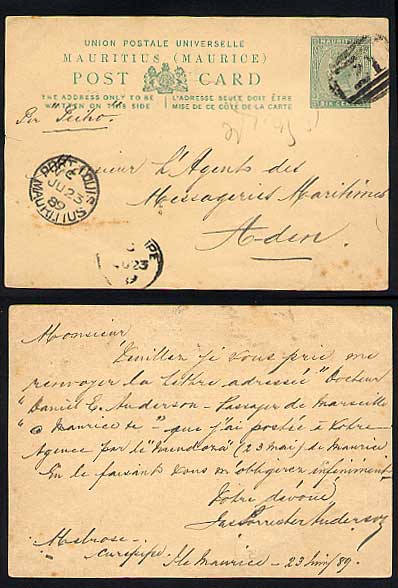 UNION POSTALE UNIVERSELLE
MAURITIUS (MAURICE)
POST CARD
THE ADDRESS ONLY TO BE WRITTEN ON THIS SIDE
L'ADRESSE SEULE DOIT ÊTRE MISE DE CE CÔTÉ DE LA CARTE
MAURITIUS
SIX CENTS
Per
Monsieur L'Agent des
Messageries Maritimes
Aden.
PORT LOUIS
JU 23
89
MAURITIUS
Monsieur
Veuillez je vous prie me
renvoyer la lettre adressée "Docteur
"Daniel E. Anderson - Passager de Marseille
à Maurice" - que j'ai postée à Votre
Agence par le "Mendoza" (23 mai) de Maurice
En le faisant vous m'obligerez infiniment
Votre dévoué
Anderson
Melrose -
Curepipe. Ile Maurice - 23 Juin/89.